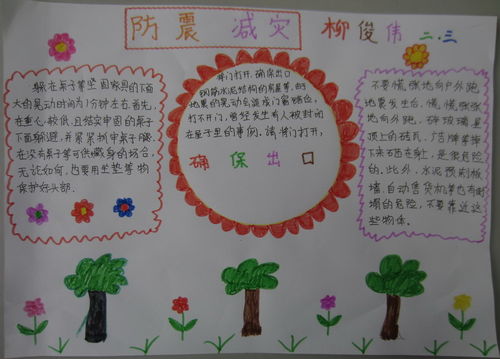 防震减灾
柳俊伟 二.三
躲在桌子等坚固家具的下面
大的晃动时间为1分钟左右.首先,
在重心较低.且结实牢固的桌子
下面躲避,并紧紧抓牢桌子腿.
在没有桌子等可供藏身的场合,
无论如何,也要用坐垫等物
保护好头部.
将门打开,确保出口
钢筋水泥结构的房屋等,由于
地震的晃动会造成门窗错位,
打不开门,曾经发生有人被封闭
在屋子里的事例.请将门打开,
确保出口
不要慌张地向户外跑
地震发生后,慌慌张张
地向外跑,碎玻璃.屋
顶上的砖瓦、广告牌等掉
下来砸在身上,是很危险
的.此外,水泥预制板
墙.自动售货机等也有倒
塌的危险,不要靠近这
些物体.